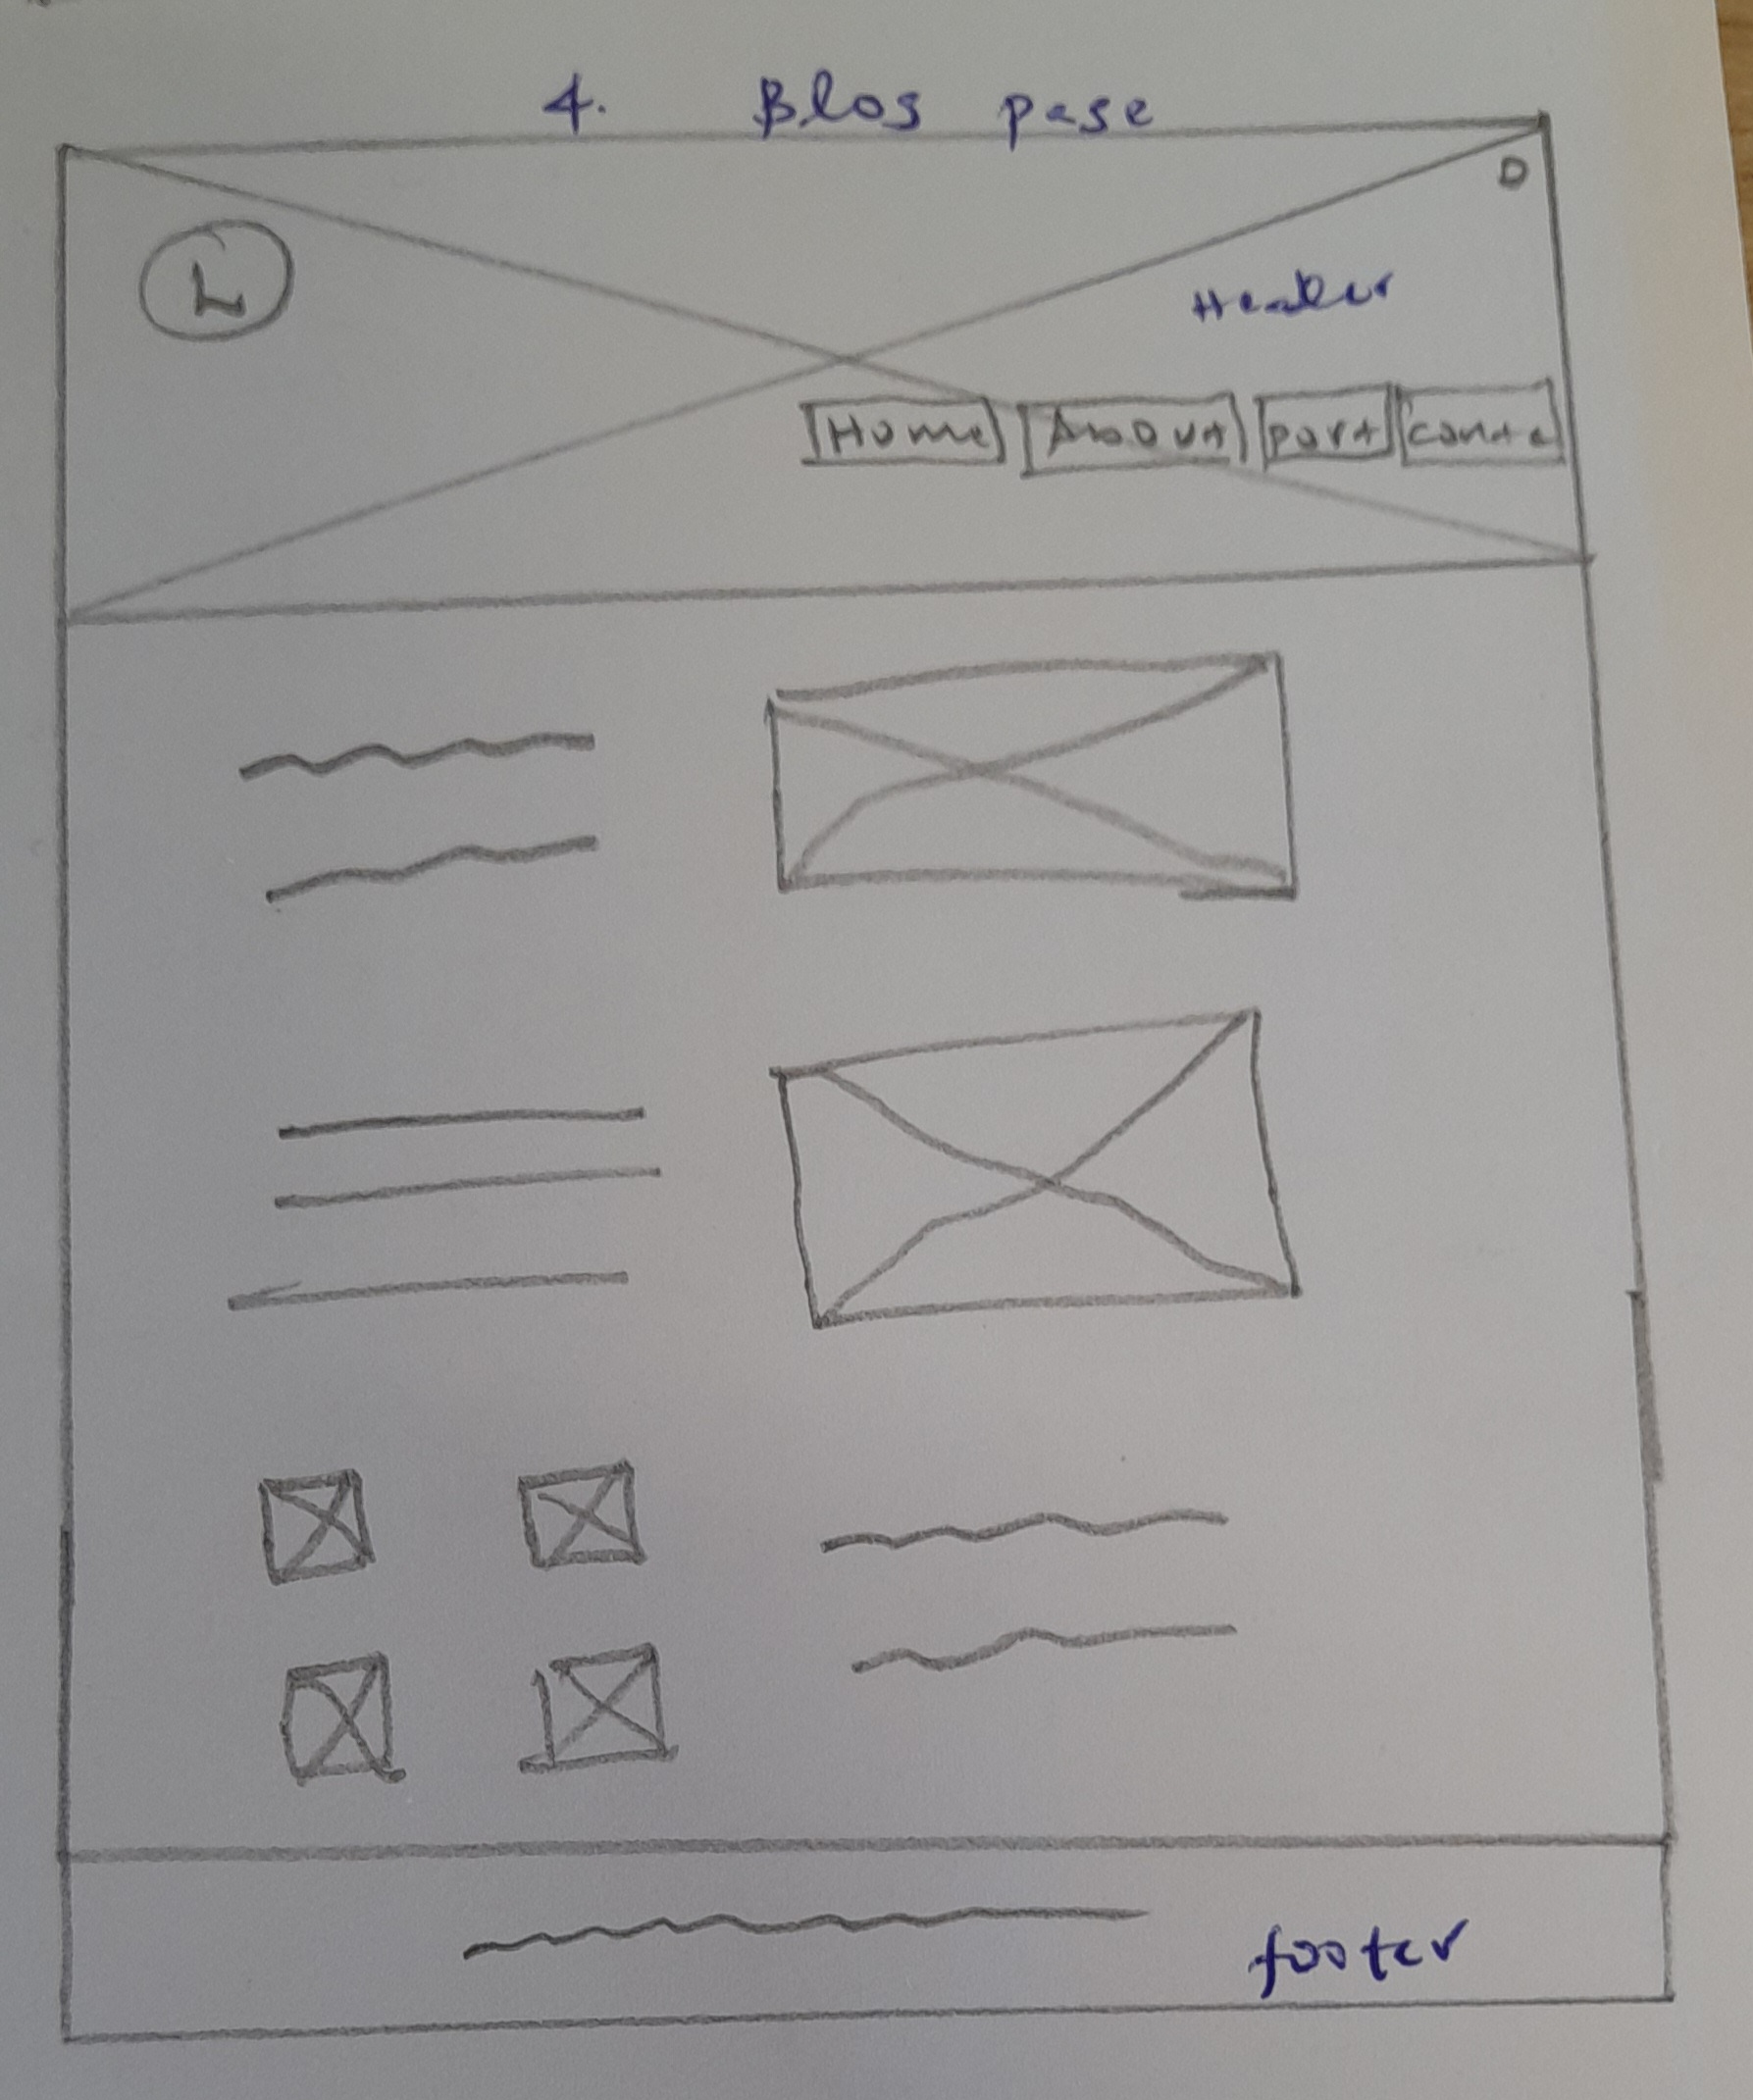 4. Blog page
D
L
Header
Home About port conta
footer